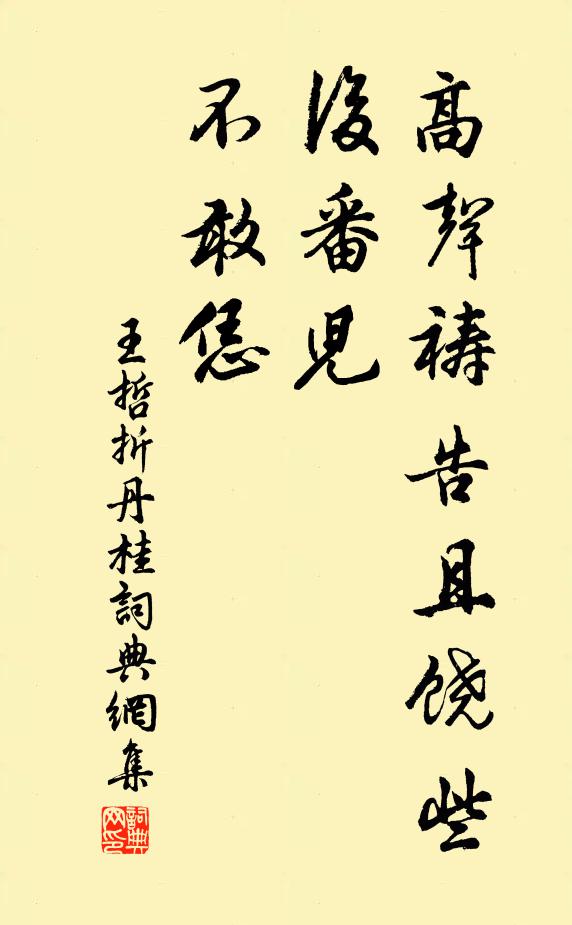 高聲禱告且饒些
後番児
不敢恁
王哲折丹桂詞典網集
詞典网印